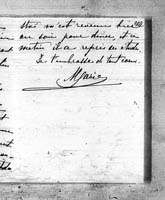 Stas m'est revenu hier
au soir pour dîner, et ce
matin il a repris ses études
Je t'embrasse de tout cœur.
M Jasie